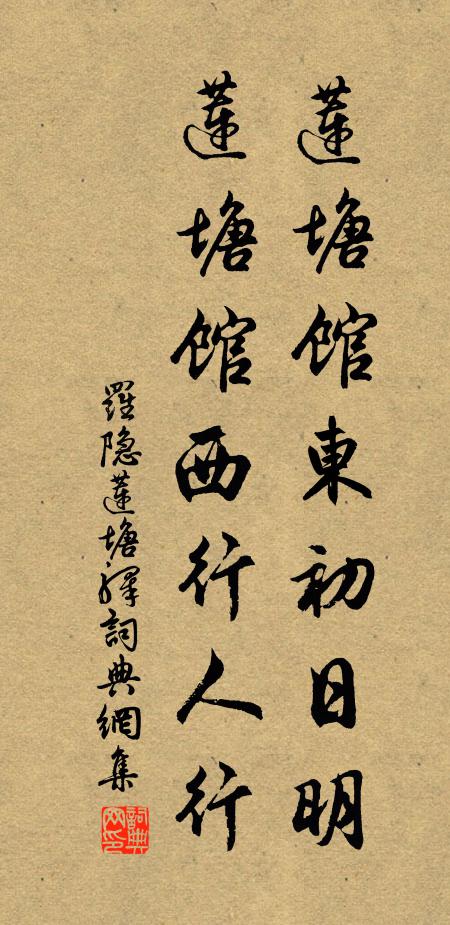 蓮塘館東初日明
蓮塘館西行人行
羅隐蓮塘驛詞典網集
詞典網印